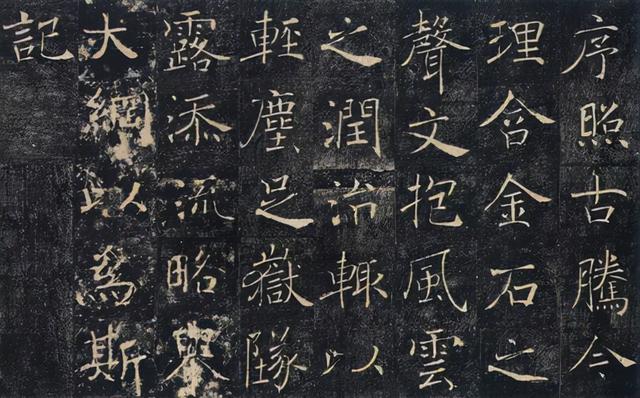 序照古騰今
理含金石之
聲文抱風雲
之潤治輒以
輕塵足嶽隊
露添流略舉
大綱以為斯
記